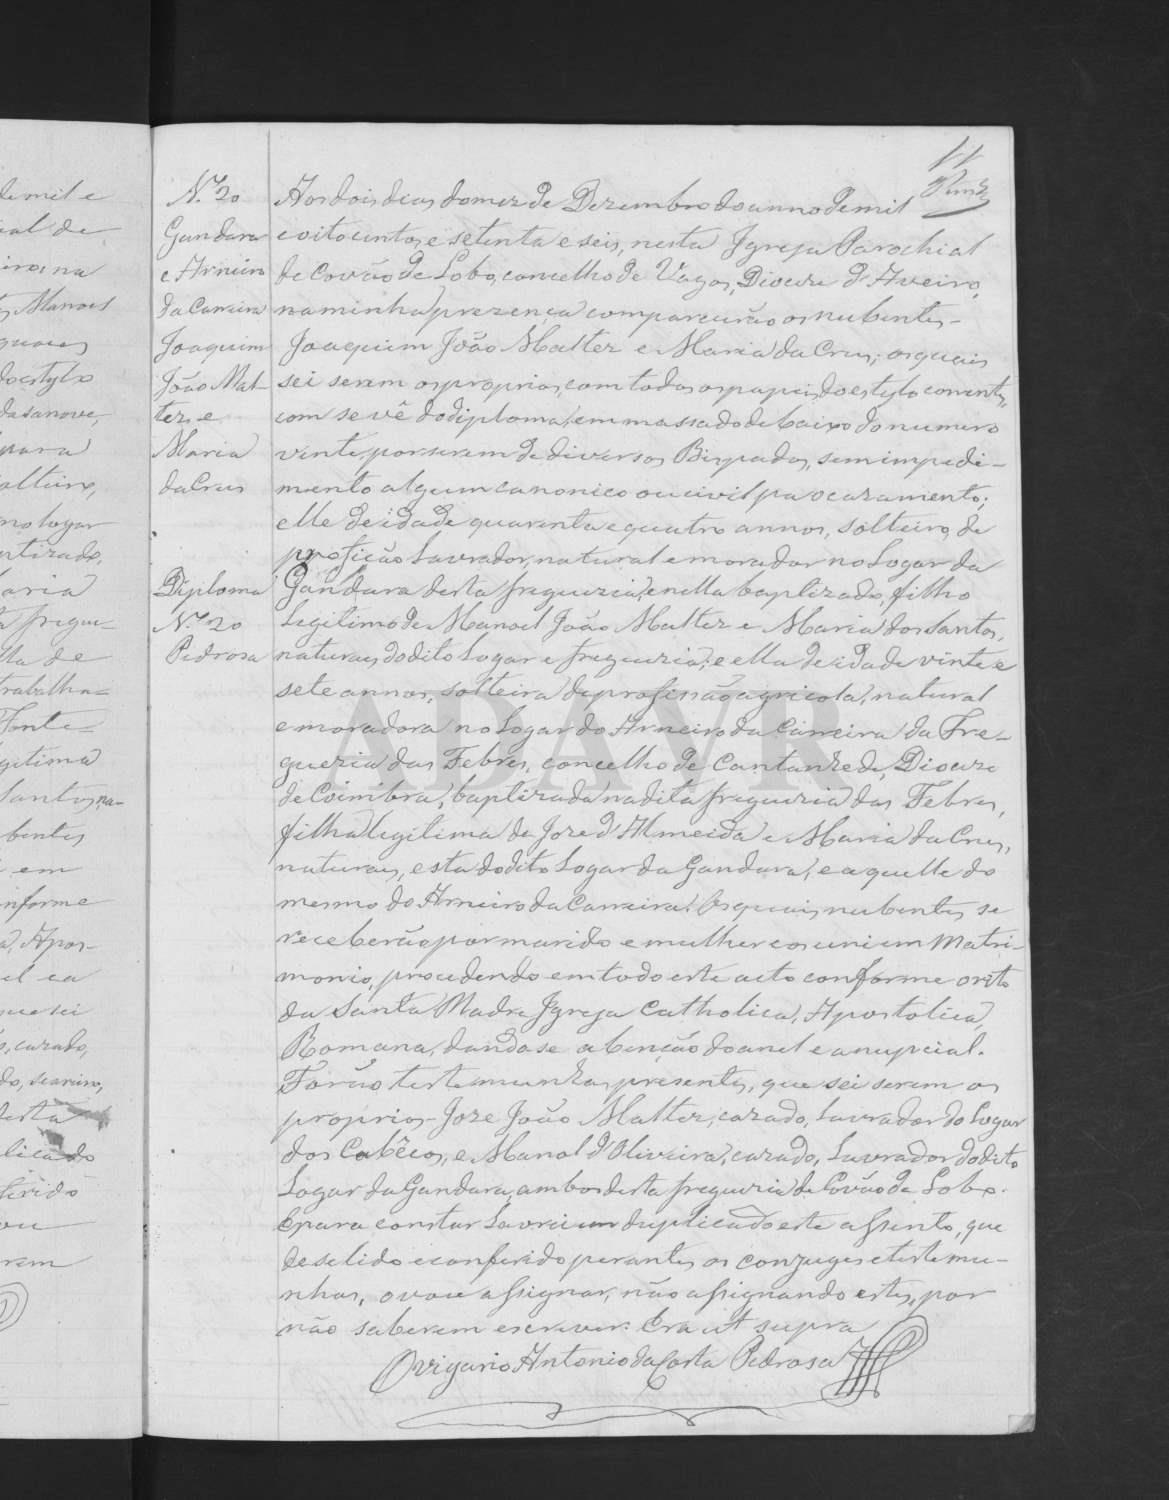 11
N.º 20
Gandara
e Arneiro
da Carreira
Joaquim
João Mat-
ter e
Maria
da Crus
Diploma
N.º 20
Pedrosa
Aos dois dias do mez de Dezembro do anno de mil
e oitocentos e setenta e seis, nesta Igreja Parochial
de Covão de Lobo, concelho de Vagos, Diocese d'Aveiro,
na minha prezença comparecerão os nubentes -
Joaquim João Matter e Maria da Crus; os quais
sei serem os proprios, com todos os papeis do estylo correntes,
com se vê do diploma, emmassado debaixo do numero
vinte, por serem de diversos Bispados, sem impedi-
mento algum canonico ou civil pa o cazamento;
elle de idade quarenta e quatro annos, solteiro, de
profição Lavrador, natural e morador no Logar da
Gandara desta freguezia, e nella baptizado, filho
Legitimo de Manoel João Matter e Maria dos Santos,
naturaes do dito Logar e freguezia; e ella de idade vinte e
sete annos, solteira de profissão agricola, natural
e moradora no Logar do Arneiro da Carreira da Fre-
guezia das Febres, concelho de Cantanhede, Diocese
de Coimbra, baptizada na dita freguezia das Febres,
filha legitima de Joze d'Almeida e Maria da Crus,
naturaes, esta do dito Logar da Gandara, e aquelle do
mesmo do Arneiro da Carreira. Os quais nubentes se
receberão por marido e mulher e os uni em Matri-
monio, procedendo em todo este acto conforme o rito
da Santa Madre Igreja Catholica, Apostolica,
Romana, dando se a benção do anel e a nupcial.
Forão testemunhas prezentes, que sei serem os
proprios - Joze João Matter, cazado, Lavrador do Logar
dos Cabêcos, e Manol d'Oliveira, cazado, Lavrador do dito
Logar da Gandara, ambos desta freguezia de Covão de Lobo.
E para constar Lavrei um duplicado este assento, que
de se lido e conferido perantes os conjuges e testemu-
nhas, o vou assignar, não assignando estes, por
não saberem escrever. Era ut supra
O vigario Antonio da Costa Pedrosa
de mil e
ial de
na
Manoel
do estylo
da sa nove,
para
olteiro,
no logar
ntizado,
aria
fregue-
lla de
trabalha-
Fonte
gitima
Santos, na-
bentes
em
nforme
Apos-
el e a
que sei
cazado,
desta
licado
ferido
ou
rem